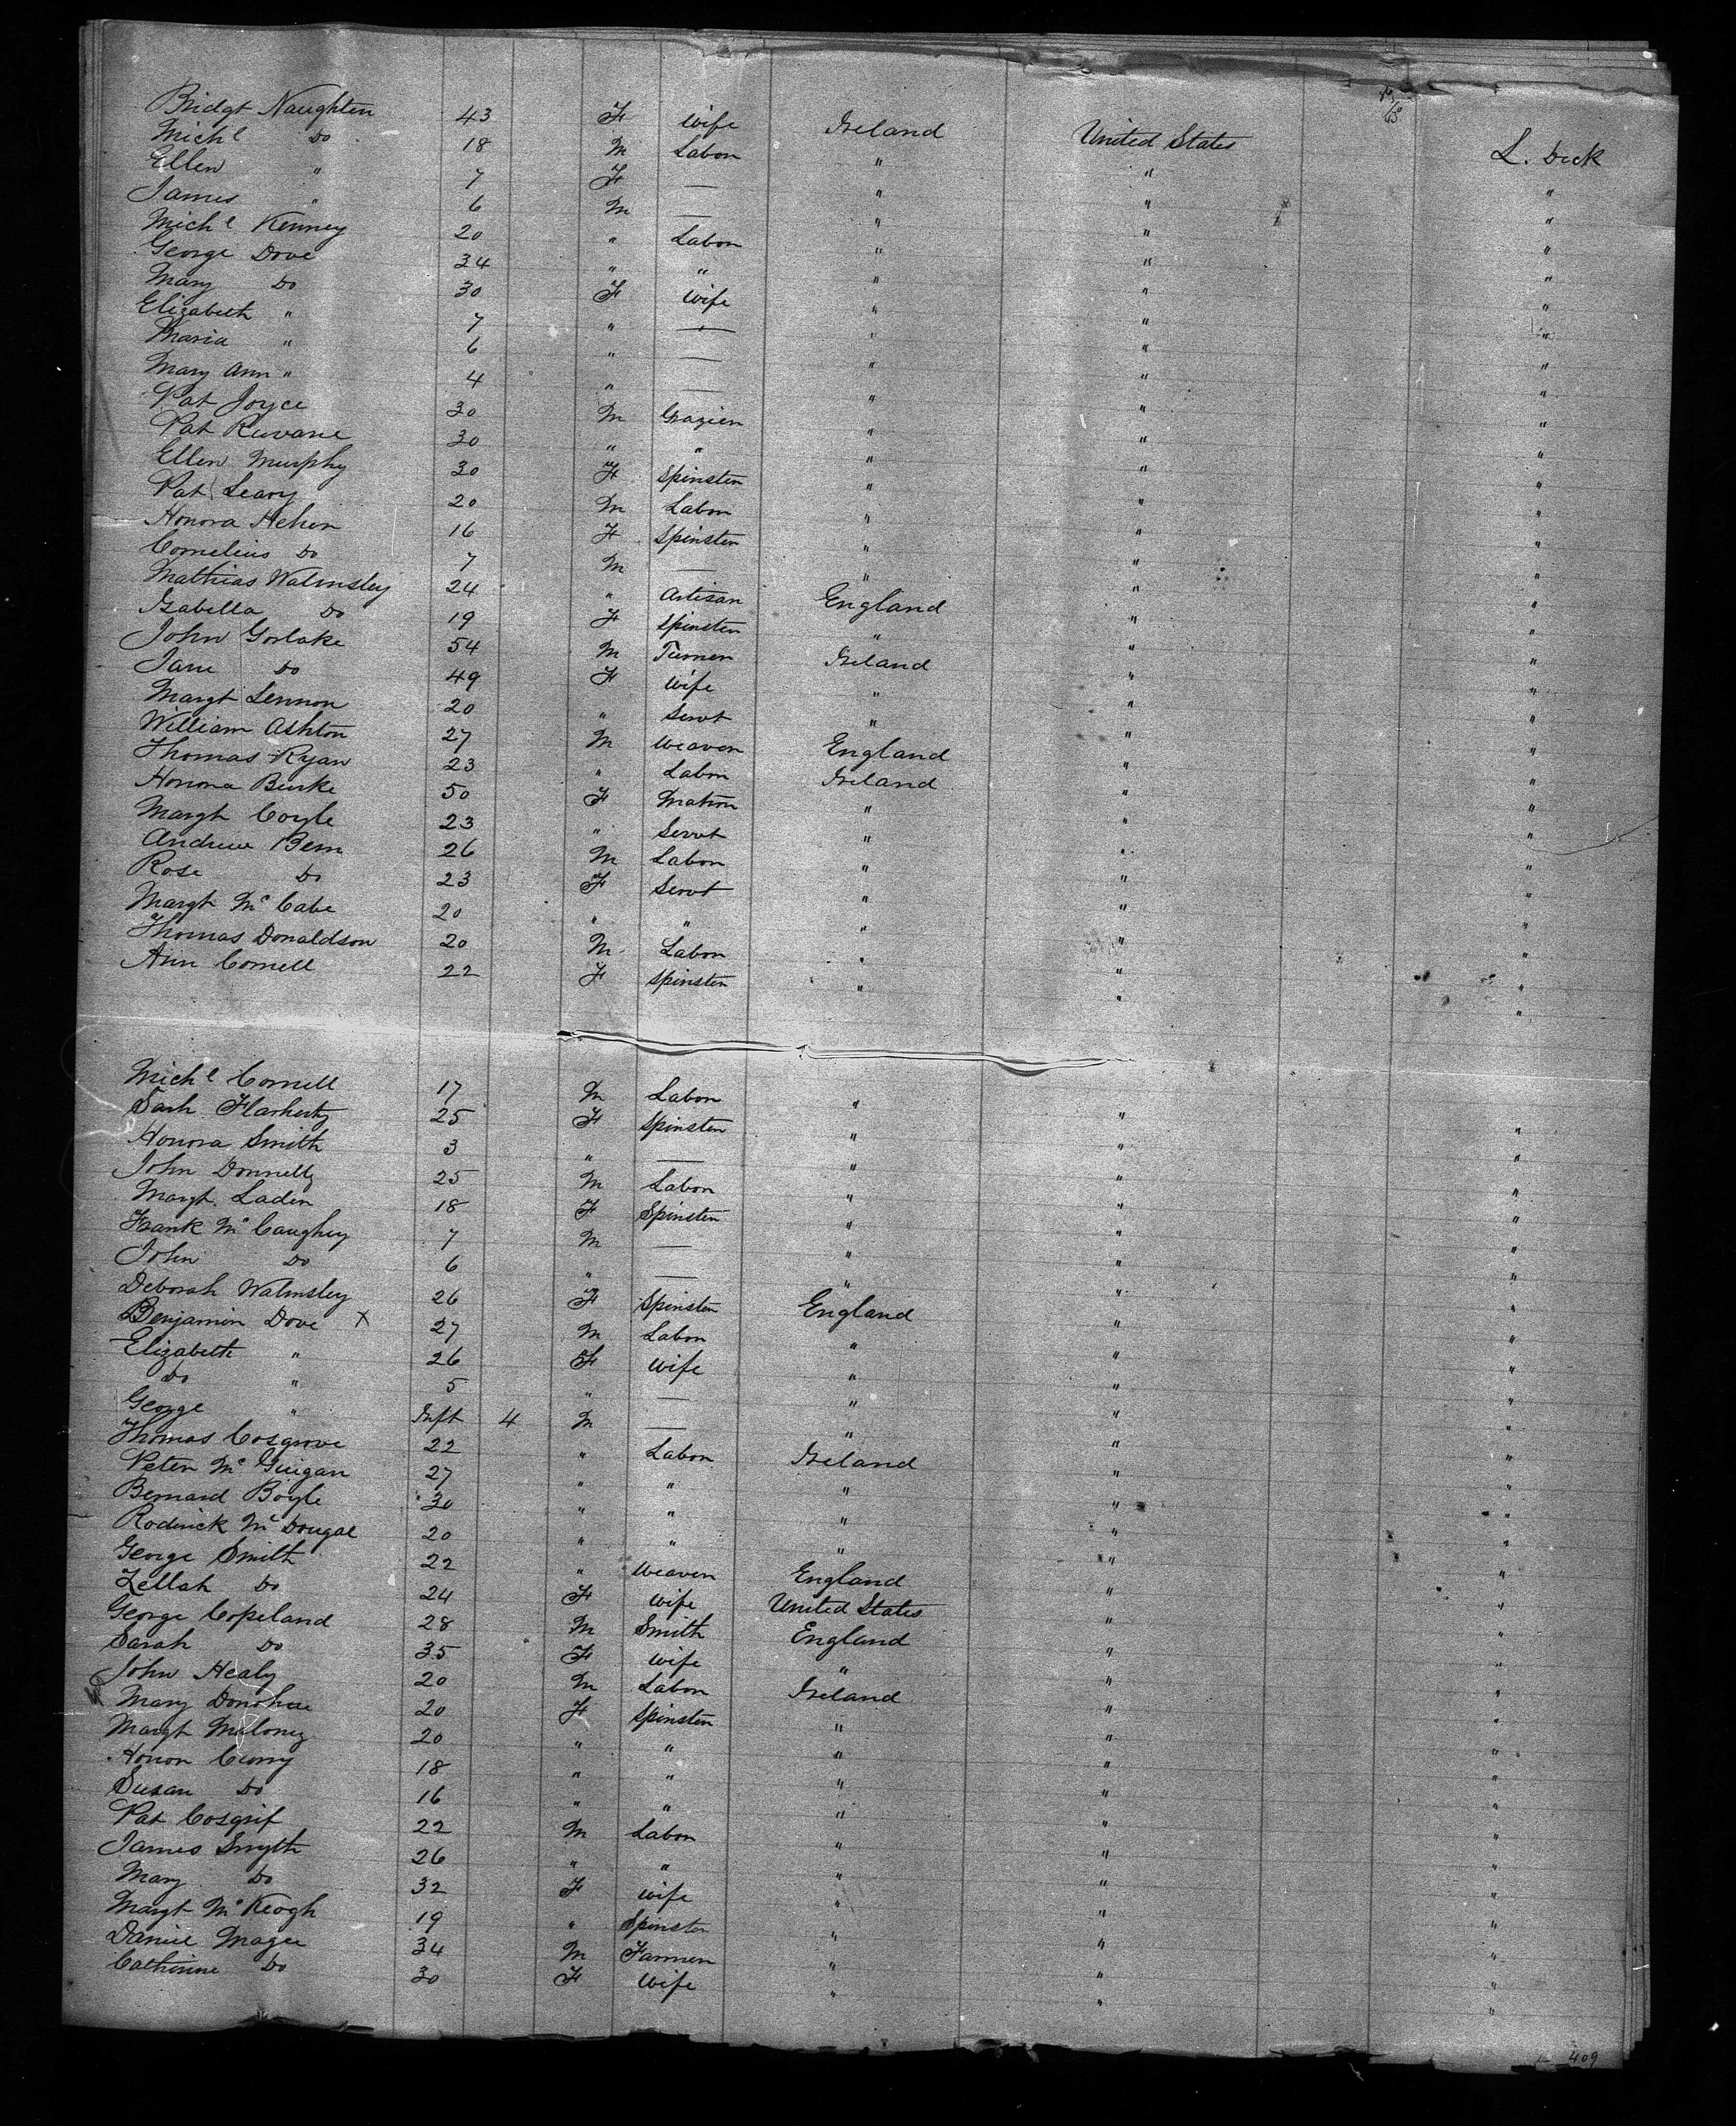 Bridgt Naughten 43 F Wife Ireland United States L. Deck
Michl Do 18 M Labor " " "
Ellen " 7 F — " " "
James " 6 M — " " "
Michl Kenney 20 " Labor " " "
George Dove 34 " " " " "
Mary Do 30 F Wife " " "
Elizabeth " 7 " — " " "
Maria " 6 " — " " "
Mary Ann " 4 " — " " "
Pat Joyce 30 M Grazier " " "
Pat Ruvane 30 " " " " "
Ellen Murphy 30 F Spinster " " "
Pat Leary 20 M Labor " " "
Honora 16 F Spinster " " "
Cornelius Do 7 M — " " "
Mathias Walmsley 24 " Artisan England " "
Isabella Do 19 F Spinster " " "
John Gorlake 54 M Turner Ireland " "
Jane Do 49 F Wife " " "
Margt Lennon 20 " Servt " " "
William Ashton 27 M Weaver England " "
Thomas Ryan 23 " Labor Ireland " "
Honora Burke 50 F Matron " " "
Margt Coyle 23 " Servt " " "
Andrew Bern 26 M Labor " " "
Rose Do 23 F Servt " " "
Margt Mc Cabe 20 " " " " "
Thomas Donaldson 20 M Labor " " "
Ann Cornell 22 F Spinster " " "
Michl Cornell 17 M Labor " " "
Sarh Flarherty 25 F Spinster " " "
Honora Smith 3 " — " " "
John Donnelly 25 M Labor " " "
Margt Laden 18 F Spinster " " "
Frank Mc Caughey 7 M — " " "
John Do 6 " — " " "
Deborah Walmsley 26 F Spinster England " "
Benjamin Dove X 27 M Labor " " "
Elizabeth " 26 F Wife " " "
Do " 5 " — " " "
George " Inft 4 M — " " "
Thomas Cosgrove 22 " Labor Ireland " "
Peter Mc Guigan 27 " " " " "
Bernard Boyle 30 " " " " "
Roderick Mc Dougal 20 " " " " "
George Smith 22 " Weaver England " "
Zellah Do 24 F Wife United States " "
George Copeland 28 M Smith England " "
Sarah Do 35 F Wife " " "
John Healy 20 M Labor Ireland " "
Mary Donohue 20 F Spinster " " "
Margt Maloney 20 " " " " "
Honor Curry 18 " " " " "
Susan Do 16 " " " " "
Pat Cosgrif 22 M Labor " " "
James Smyth 26 " " " " "
Mary Do 32 F Wife " " "
Margt Mc Keogh 19 " Spinster " " "
Daniel Magee 34 M Farmer " " "
Catherine Do 30 F Wife " " "
409